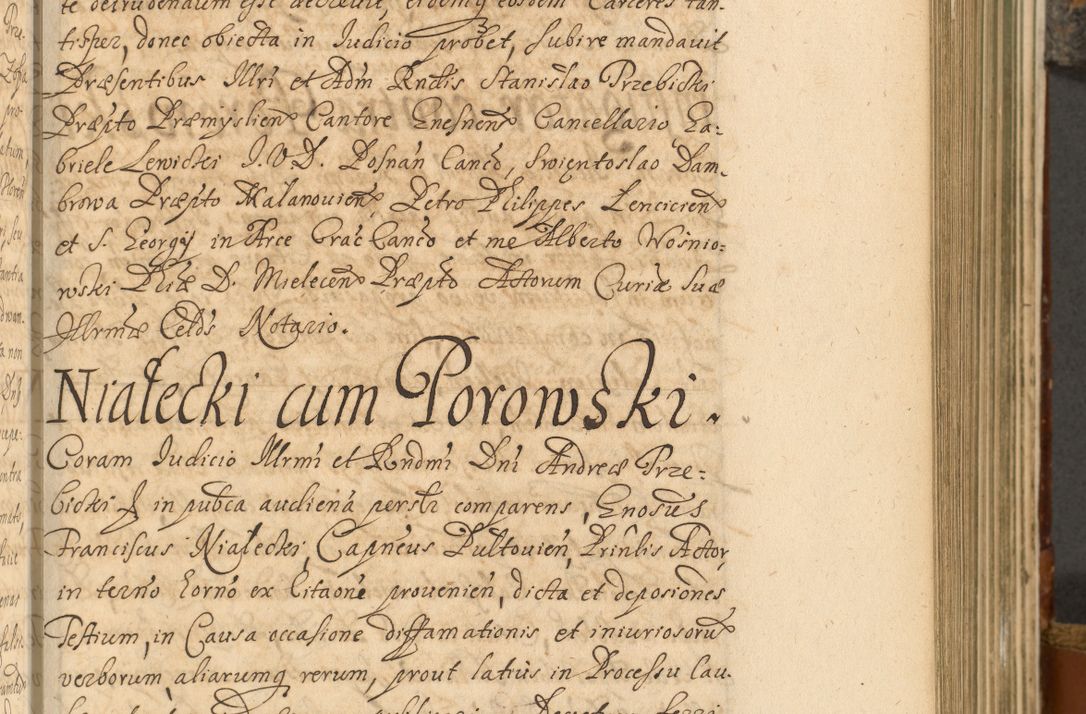 te detrudendum esse decrevit, eidemq eosdem Carceres tan-
tisper, donec obiecta in Iudicio probet, subire mandauit
Præsentibus Illri et Adm Rndis Stanislao Przebicki
Præpto Præmyslien Cantore Gnesnen Cancellario Ga:
briele Lewicki I.V.D. Posnan Canco, Swiętoslao Dam-
browa Præpto Malanouien, Petro Philippes Lencicien
et S. Georgij in Arce Crac Canco et me Alberto Wosnio:
wski Phiæ D. Mielecen Præpto Actorum Curiæ Suæ
Illrmæ Celdis Notario.
Niałecki cum Porowski.
Coram Iudicio Illrmi et Rndmi Dni Andreæ Prze:
bicki in pubca audiena persltr comparens, Gnosus
Franciscus Niałecki, Capneus Pultouien, Prinlis Actor,
in terno Forno ex Citaone prouenien, dicta et deposiones
Testium, in Causa occasione diffamationis et iniuriosoru
verborum aliarumq rerum, prout latius in Processu cau-